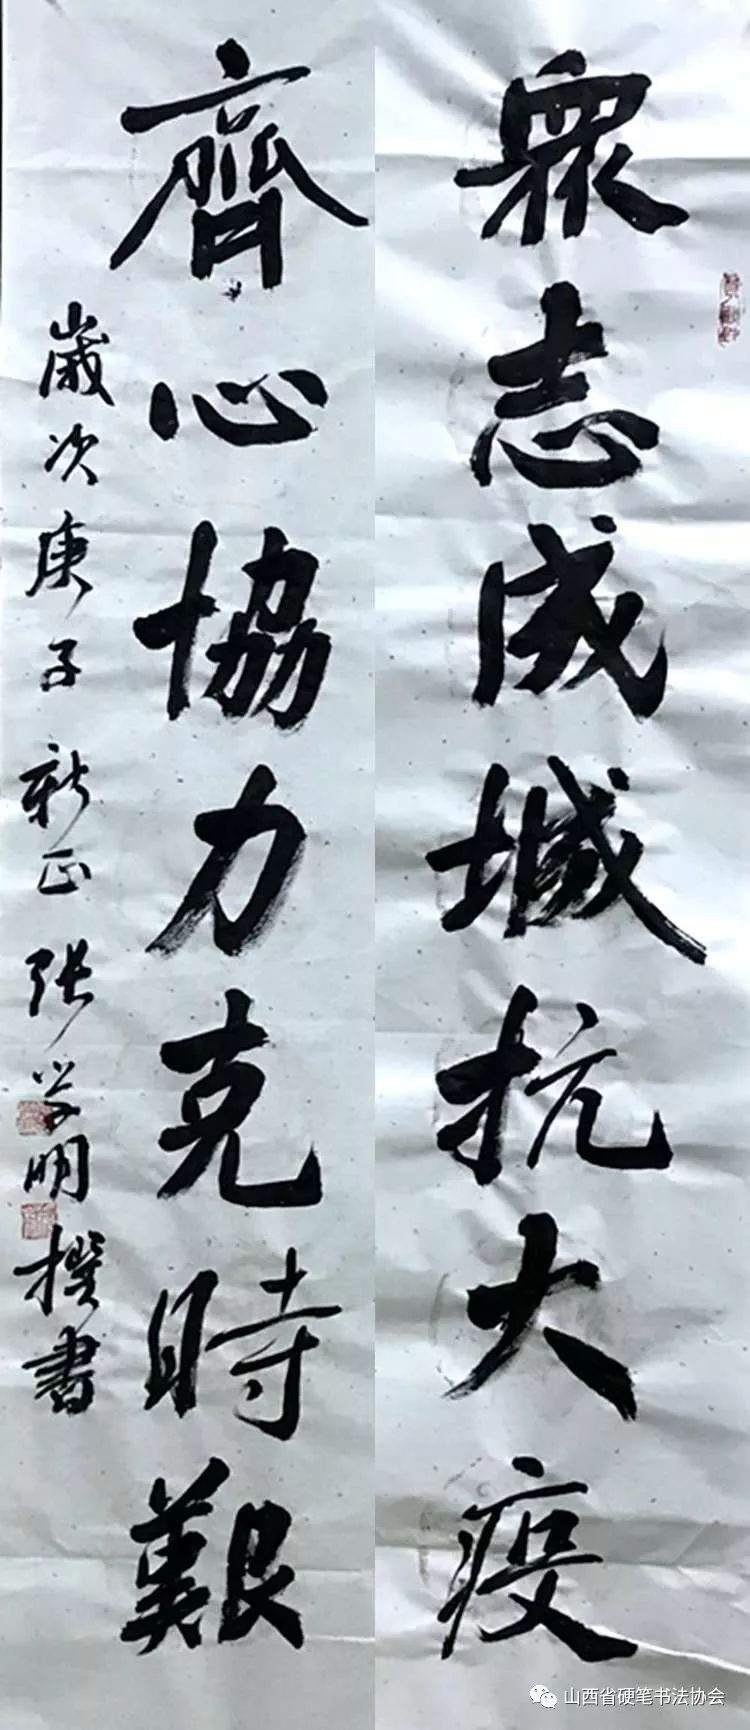 眾志成城抗大疫
齊心協力克時艱
歲次庚子新正張学明撰書
山西省硬笔书法协会